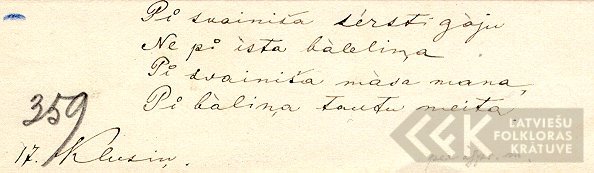 På svainiša sérstì gàju
Ne på ìsta bàleliņa
På svainiša màsa mana,
På bàliņa tautu meita.
359
17. Klusiņ.
LATVIEŠU
FOLKLORAS
KRĀTUVE